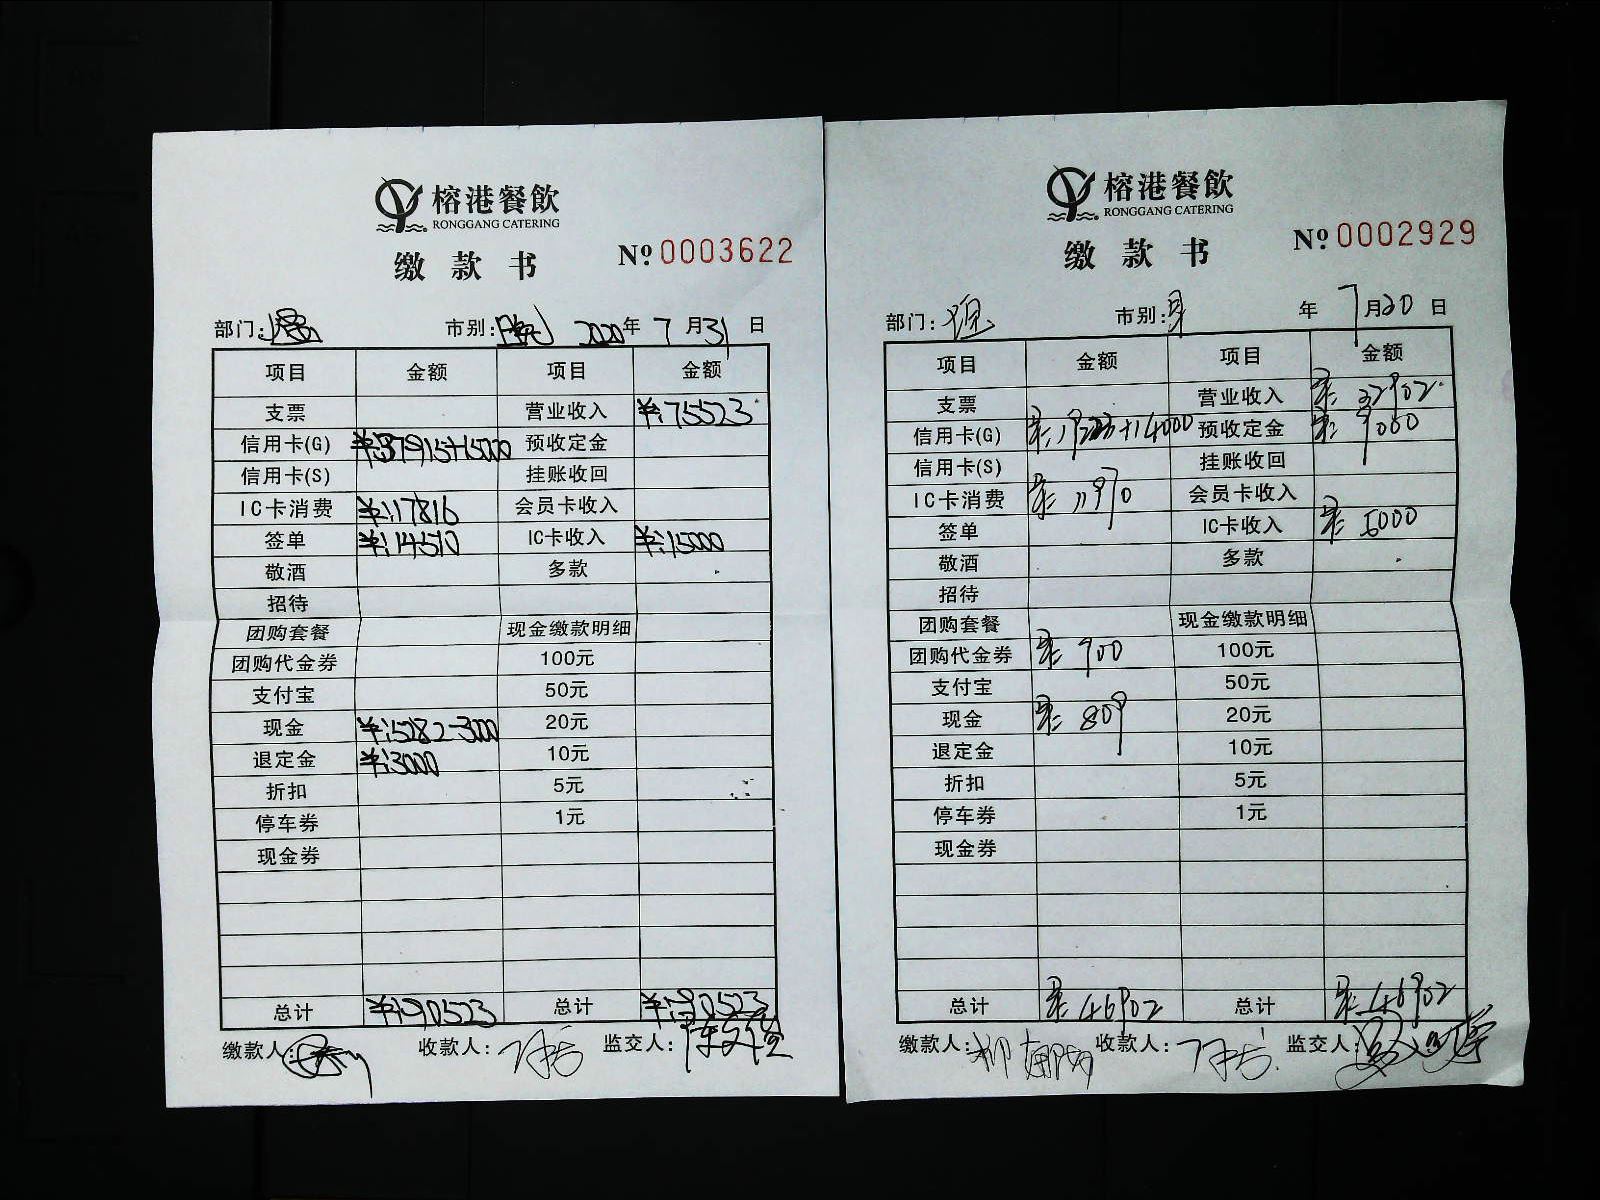 榕港餐飲
RONGGANG CATERING
缴款书
№ 0003622
部门: 市别: 晚 2020年 7月31日
项目 金额 项目 金额
支票 营业收入 ¥:75523
信用卡(G) ¥:37915+15000 预收定金
信用卡(S) 挂账收回
IC卡消费 ¥:17816 会员卡收入
签单 ¥:14510 IC卡收入 ¥:15000
敬酒 多款
招待
团购套餐 现金缴款明细
团购代金券 100元
支付宝 50元
现金 ¥:5282-3000 20元
退定金 ¥:3000 10元
折扣 5元
停车券 1元
现金券
总计 ¥:90523 总计 ¥:90523
缴款人: 收款人: 监交人:
榕港餐飲
RONGGANG CATERING
缴款书
№ 0002929
部门: 市别: 年 7月20日
项目 金额 项目 金额
支票 营业收入 32902
信用卡(G) 19223+14000 预收定金 9000
信用卡(S) 挂账收回
IC卡消费 11970 会员卡收入
签单 IC卡收入 5000
敬酒 多款
招待
团购套餐 现金缴款明细
团购代金券 900 100元
支付宝 50元
现金 809 20元
退定金 10元
折扣 5元
停车券 1元
现金券
总计 46902 总计 46902
缴款人: 收款人: 监交人: